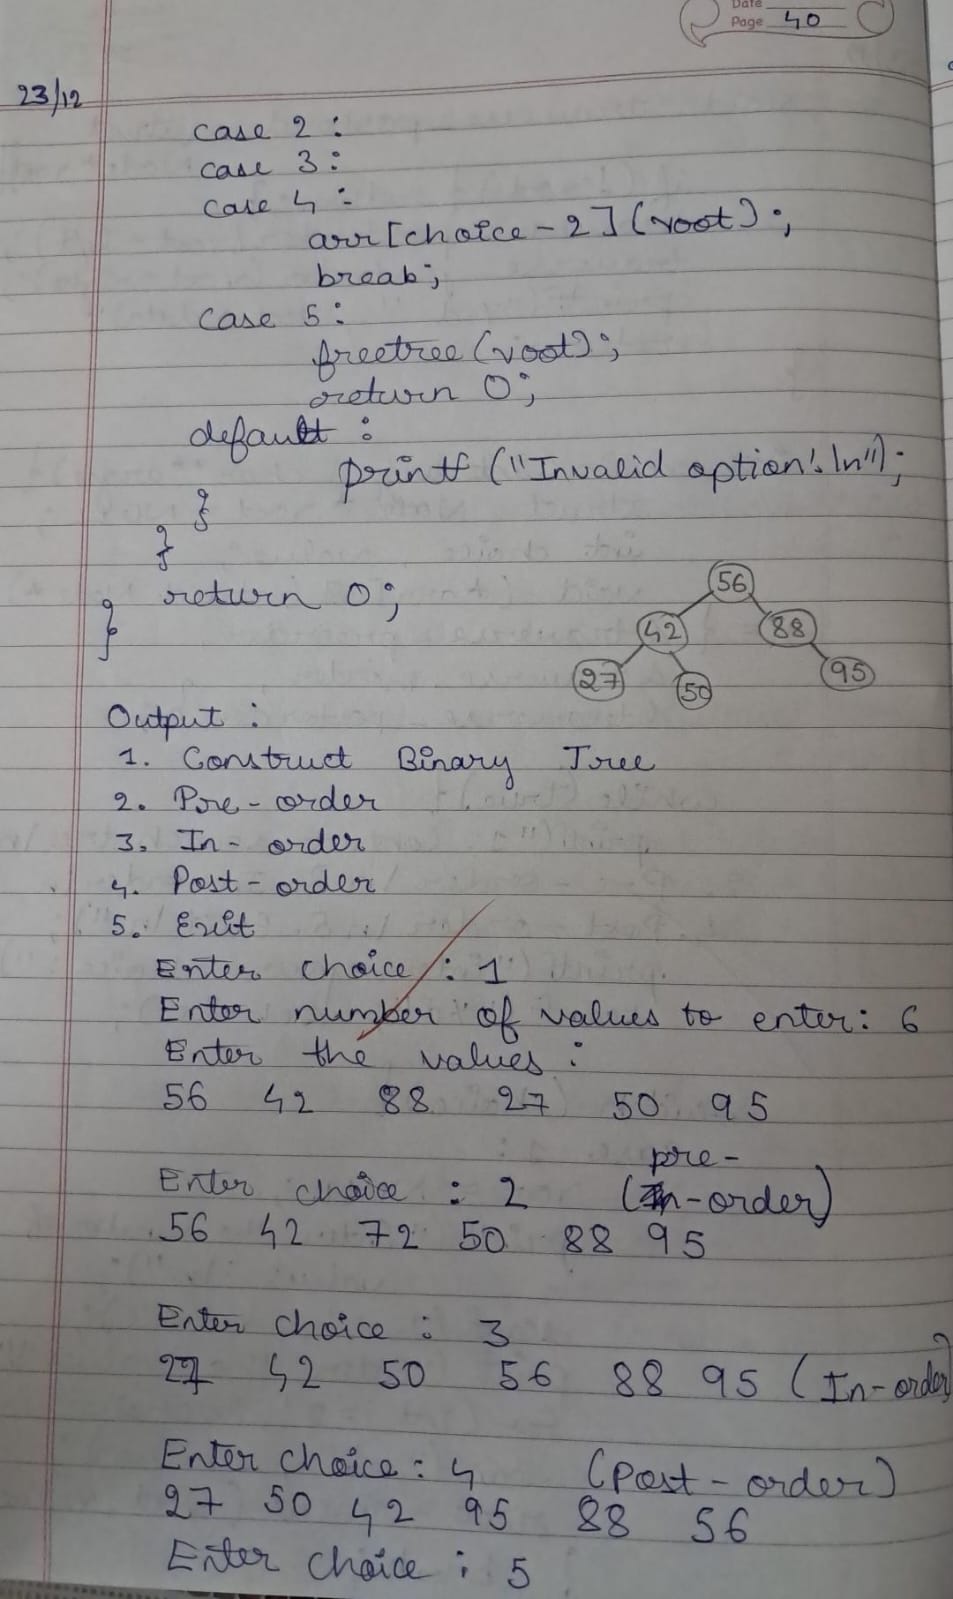 Date
Page 40
23/12
case 2 :
case 3 :
case 4 :
arr[choice-2](root);
break;
case 5 :
freetree(root);
return 0;
default :
printf("Invalid option!\n");
}
}
return 0;
}
56
42 88
27 50 95
Output :
1. Construct Binary Tree
2. Pre-order
3. In-order
4. Post-order
5. Exit
Enter choice : 1
Enter number of values to enter: 6
Enter the values :
56 42 88 27 50 95
Enter choice : 2 (pre-order)
56 42 72 50 88 95
Enter choice : 3
27 42 50 56 88 95 (In-order)
Enter choice : 4 (Post-order)
27 50 42 95 88 56
Enter choice : 5